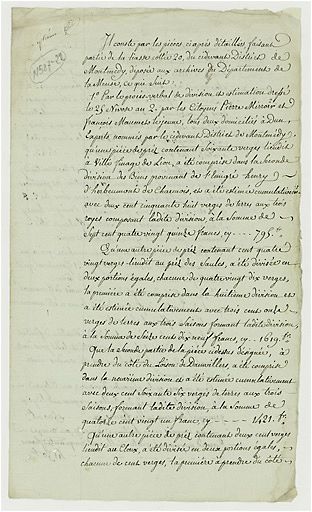 Il conste par les pièces ci après détaillées faisant
partie de la liasse cotée 20, du cidevant District de
Montmédy, déposée aux archives du Département de
la Meuse, ce que suit:
1° Par le procès verbal de division, et estimation dressé
le 25 Nivose an 2e par les Citoyens Pierre Mercier et
François Maumets le jeune, tous deux domiciliés à Dun,
Experts nommés par le cidevant District de Montmédy;
qu'une pièce de prez contenant soixante verges lieudit
à Ville finage de Lion, a été comprise dans la seconde
division des Biens provenant de l'émigré henry
d'herbeumont de Charmois, et a été estimée cumulativement
avec deux cent cinquante huit verges de terres aux trois
royes composant ladite division, à la Somme de
Sept cent quatre vingt quinze francs, cy 795.
Qu'une autre pièce de prez contenant cent quatre
vingt verges lieudit au prez des Saules, a été divisée en
deux portions égales, chacune de quatre vingt dix verges,
la première a été comprise dans la huitième division et
a été estimée cumulativement avec trois cent onze
verges de terres aux trois saisons formant ladite division,
à la Somme de seize cent dix neuf francs, cy 1619.
Que la seconde partie de la pièce ci dessus désignée, à
prendre du côté du Loison de Damvillers, a été comprise
dans la neuvième division et a été estimée cumulativement
avec deux cent soixante six verges de terres aux trois
Saisons, formant ladite division, à la Somme de
quatorze cent vingt un francs, cy 1421.
Qu'une autre pièce de prez contenant deux cent verges
lieudit au Cloux, a été divisée en deux portions égales,
chacune de cent verges, la première à prendre du côté